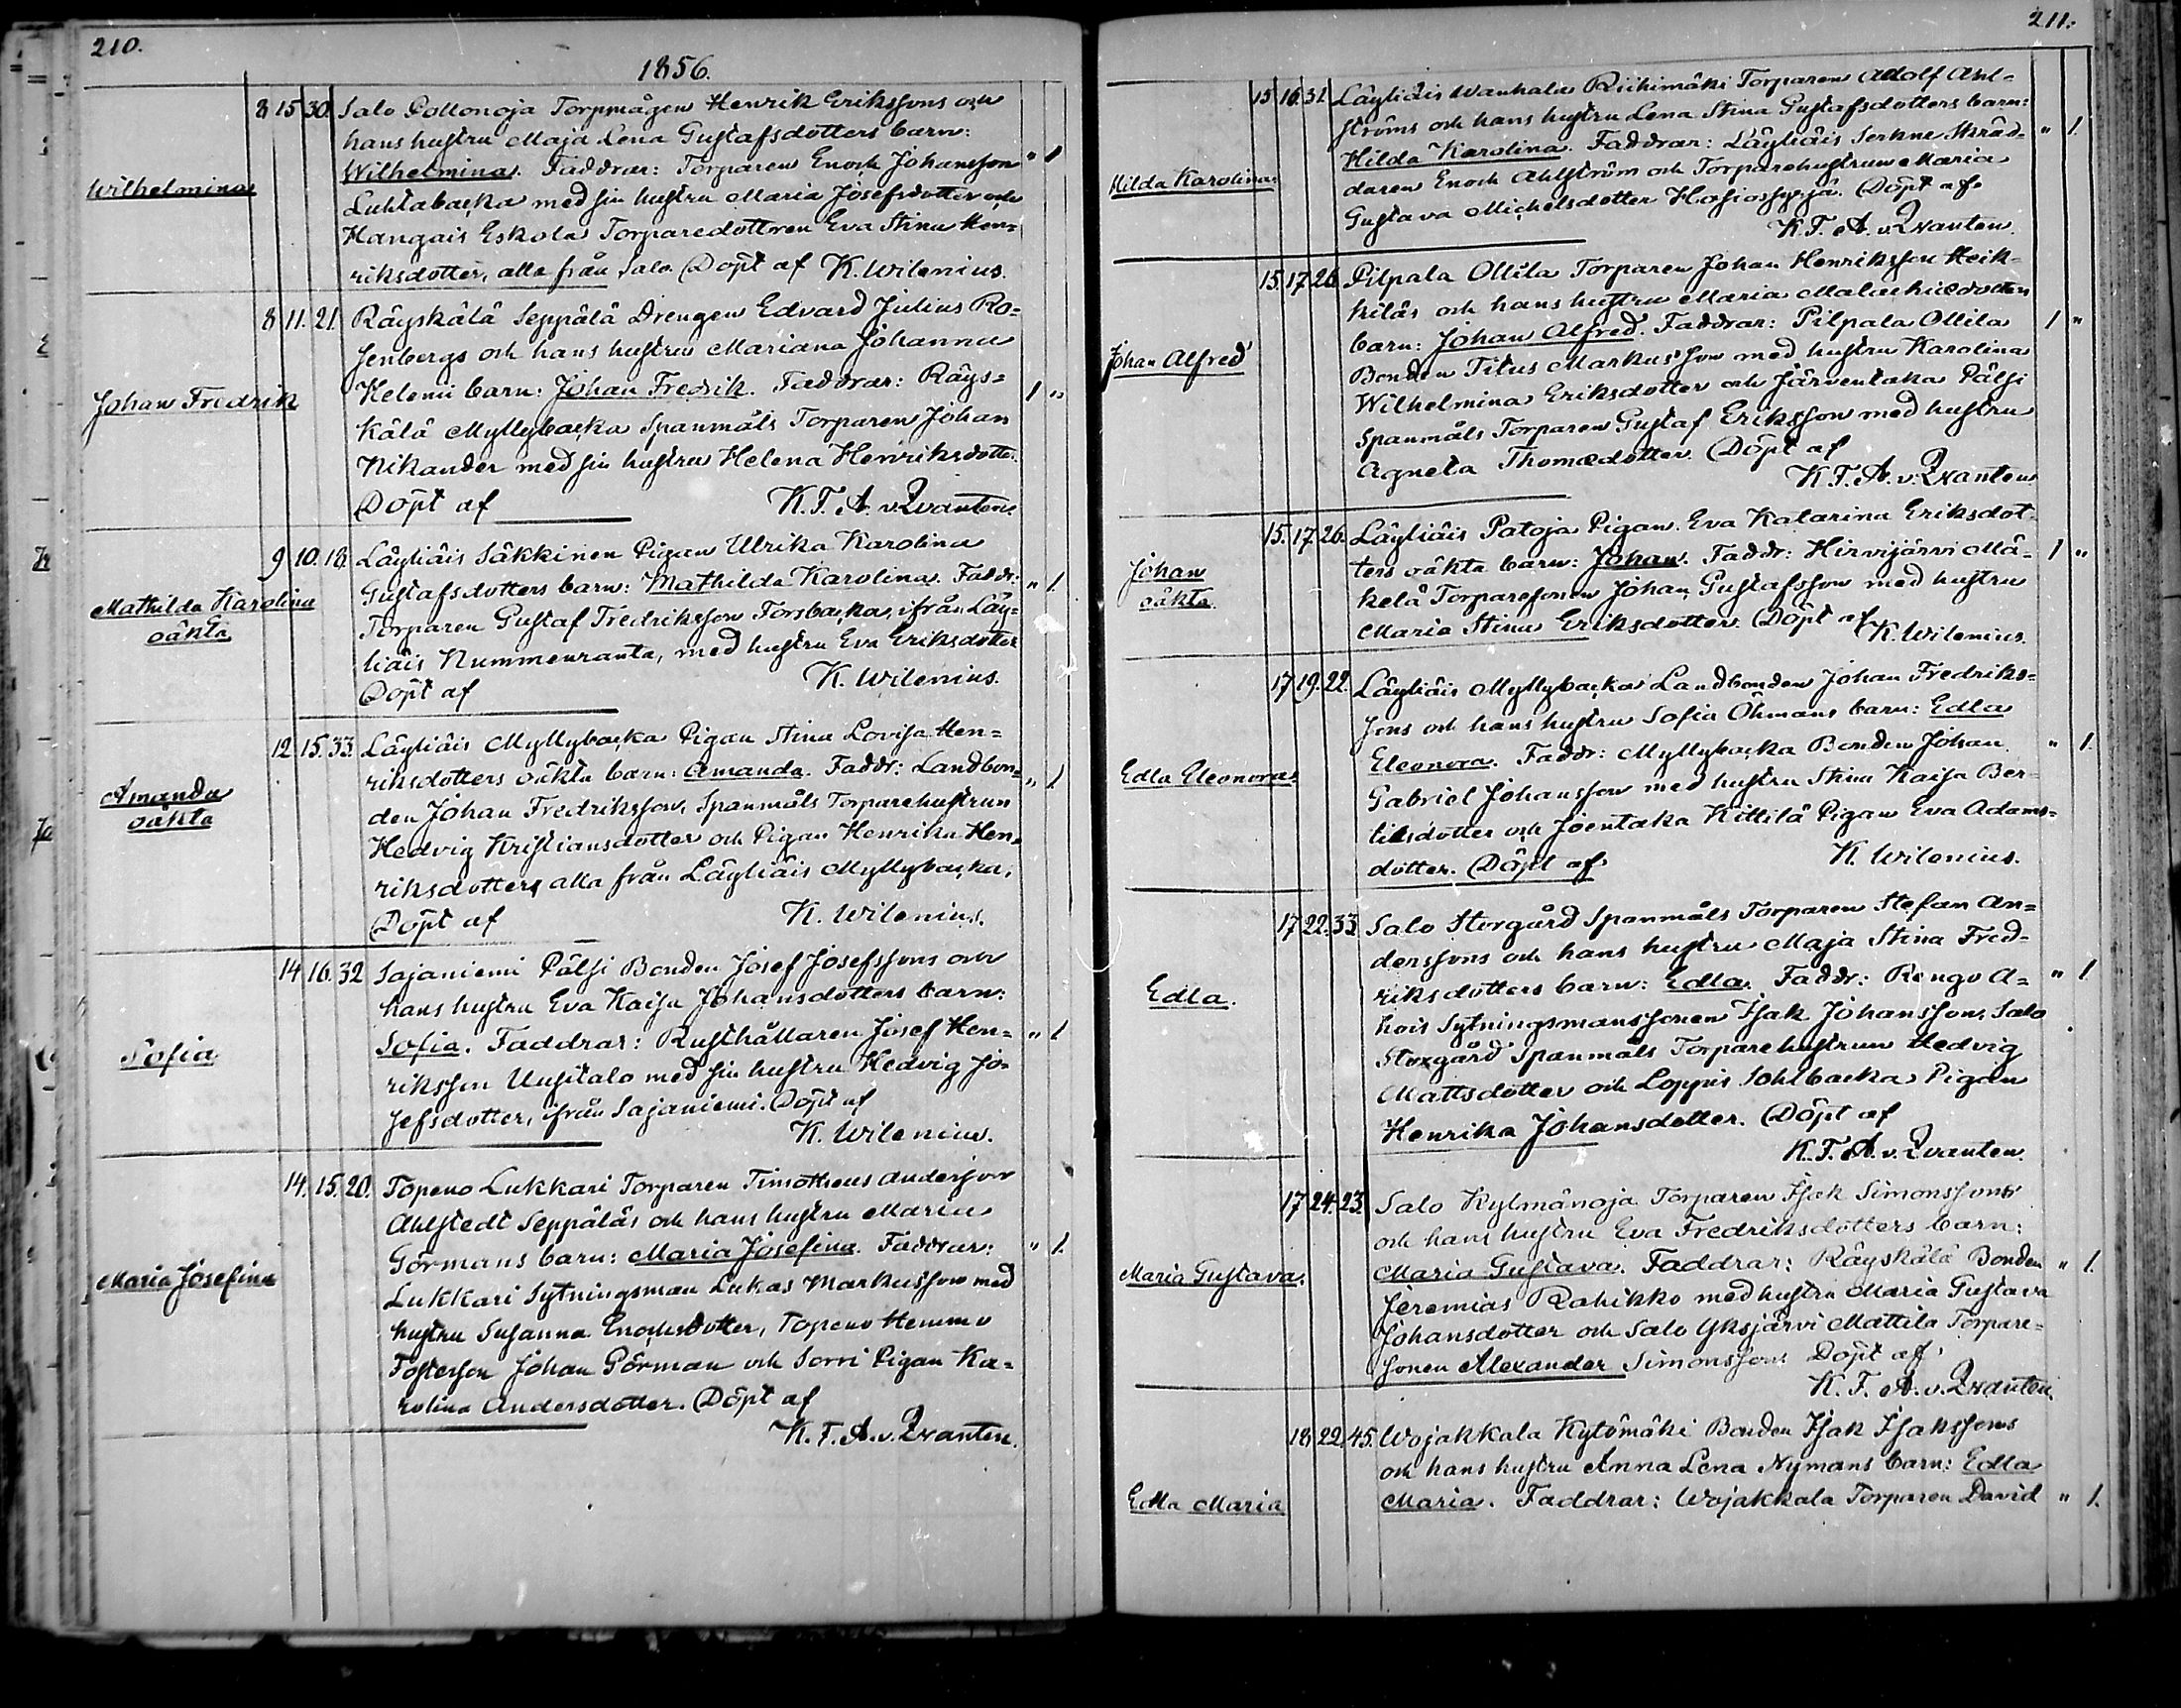 210.
1856.
Wilhelmina
8 15 30. Salo Pollonoja Torpmågen Henrik Erikssons och
hans hustru Maja Lena Gustafsdotters barn:
Wilhelmina. Faddrar: Torparen Enoch Johansson " 1
Luhtabacka med sin hustru Maria Josefsdotter och
Hangais Eskola Torparedottren Eva Stina Hen=
riksdotter, alla från Salo. Döpt af K. Wilenius.
Johan Fredrik
8 11. 21. Räyskälä Seppälä Drengen Edvard Julius Ro=
senbergs och hans hustru Mariana Johanna
Helenii barn: Johan Fredrik. Faddrar: Räys= 1 "
kälä Myllybacka Spanmåls Torparen Johan
Nikander med sin hustru Helena Henriksdotter.
Döpt af K. F. A. v. Qvanten.
Mathilda Karolina
oäkta
9 10. 18. Läyliäis Säkkinen Pigan Ulrika Karolina
Gustafsdotters barn: Mathilda Karolina. Faddr: " 1.
Torparen Gustaf Fredriksson Forsbacka, ifrån Läy=
liäis Nummenranta, med hustru Eva Eriksdotter
Döpt af K. Wilenius.
Amanda
oäkta
12 15. 33. Läyliäis Myllybacka Pigan Stina Lovisa Hen=
riksdotters oäkta barn: Amanda. Faddr: Landbon= " 1
den Johan Fredriksson, Spanmåls Torparehustrun
Hedvig Kristiansdotter och Pigan Henrika Hen=
riksdotter, alla från Läyliäis Myllybacka.
Döpt af K. Wilenius.
Sofia
14 16. 32 Sajaniemi Pälsi Bonden Josef Josefssons och
hans hustru Eva Kaisa Johansdotters barn:
Sofia. Faddrar: Rusthållaren Josef Hen= " 1
riksson Uusitalo med sin hustru Hedvig Jo=
sefsdotter, ifrån Sajaniemi. Döpt af
K. Wilenius.
Maria Josefina
14. 15. 20. Topeno Lukkari Torparen Timotheus Andersson
Ahlstedt Seppäläs och hans hustru Maria
Görmans barn: Maria Josefina. Faddrar: " 1.
Lukkari Sytningsman Lukas Markusson med
hustru Susanna Enochsdotter, Topeno Hemmo
Fosterson Johan Görman och Sorri Pigan Ka=
rolina Andersdotter. Döpt af
K. F. A. v. Qvanten.
211.
Hilda Karolina
15 16. 31. Läyliäis Wanhala Riihimäki Torparen Adolf Ahl=
ströms och hans hustru Lena Stina Gustafsdotters barn:
Hilda Karolina. Faddrar: Läyliäis Serkne Skräd= " 1.
daren Enoch Ahlström och Torparehustrun Maria
Gustava Michelsdotter Döpt af
K. F. A. v. Qvanten.
Johan Alfred
15. 17. 26. Pilpala Ollila Torparen Johan Henriksson Heik=
kiläs och hans hustru Maria Malachiædotters
barn: Johan Alfred. Faddrar: Pilpala Ollila 1 "
Bonden Titus Markusson med hustru Karolina
Wilhelmina Eriksdotter och Järventaka Pälsi
Spanmåls Torparen Gustaf Eriksson med hustru
Agneta Thomædotter. Döpt af
K. F. A. v. Qvanten
Johan
oäkta.
15. 17. 26. Läyliäis Patoja Pigan Eva Katarina Eriksdot=
ters oäkta barn: Johan. Faddr: Hirvijärvi Mä= 1 "
kelä Torparesonen Johan Gustafsson med hustru
Maria Stina Eriksdotter. Döpt af K. Wilenius.
Edla Eleonora
17 19. 22. Läyliäis Myllybacka Landbonden Johan Fredriks=
sons och hans hustru Sofia Öhmans barn: Edla
Eleonora. Faddr: Myllybacka Bonden Johan " 1.
Gabriel Johansson med hustru Stina Kaisa Ber=
tilsdotter och Joentaka Kittilä Pigan Eva Adams=
dotter. Döpt af K. Wilenius.
Edla.
17 22. 33. Salo Storgård Spanmåls Torparen Stefan An=
derssons och hans hustru Maja Stina Fred=
riksdotters barn: Edla. Faddr: Rengo A= " 1.
hois Sytningsmanssonen Isak Johansson, Salo
Storgård Spanmåls Torparehustrun Hedvig
Mattsdotter och Loppis Sohlbacka Pigan
Henrika Johansdotter. Döpt af
K. F. A. v. Qvanten.
Maria Gustava.
17 24. 23. Salo Kylmänoja Torparen Isak Simonssons
och hans hustru Eva Fredriksdotters barn:
Maria Gustava. Faddrar: Räyskälä Bonden " 1.
Jeremias Rahikko med hustru Maria Gustava
Johansdotter och Salo Yksjärvi Mattila Torpare=
sonen Alexander Simonsson. Döpt af
K. F. A. v. Qvanten.
Edla Maria
18. 22. 45. Wojakkala Kytömäki Bonden Isak Isakssons
och hans hustru Anna Lena Nymans barn: Edla
Maria. Faddrar: Wojakkala Torparen David " 1.